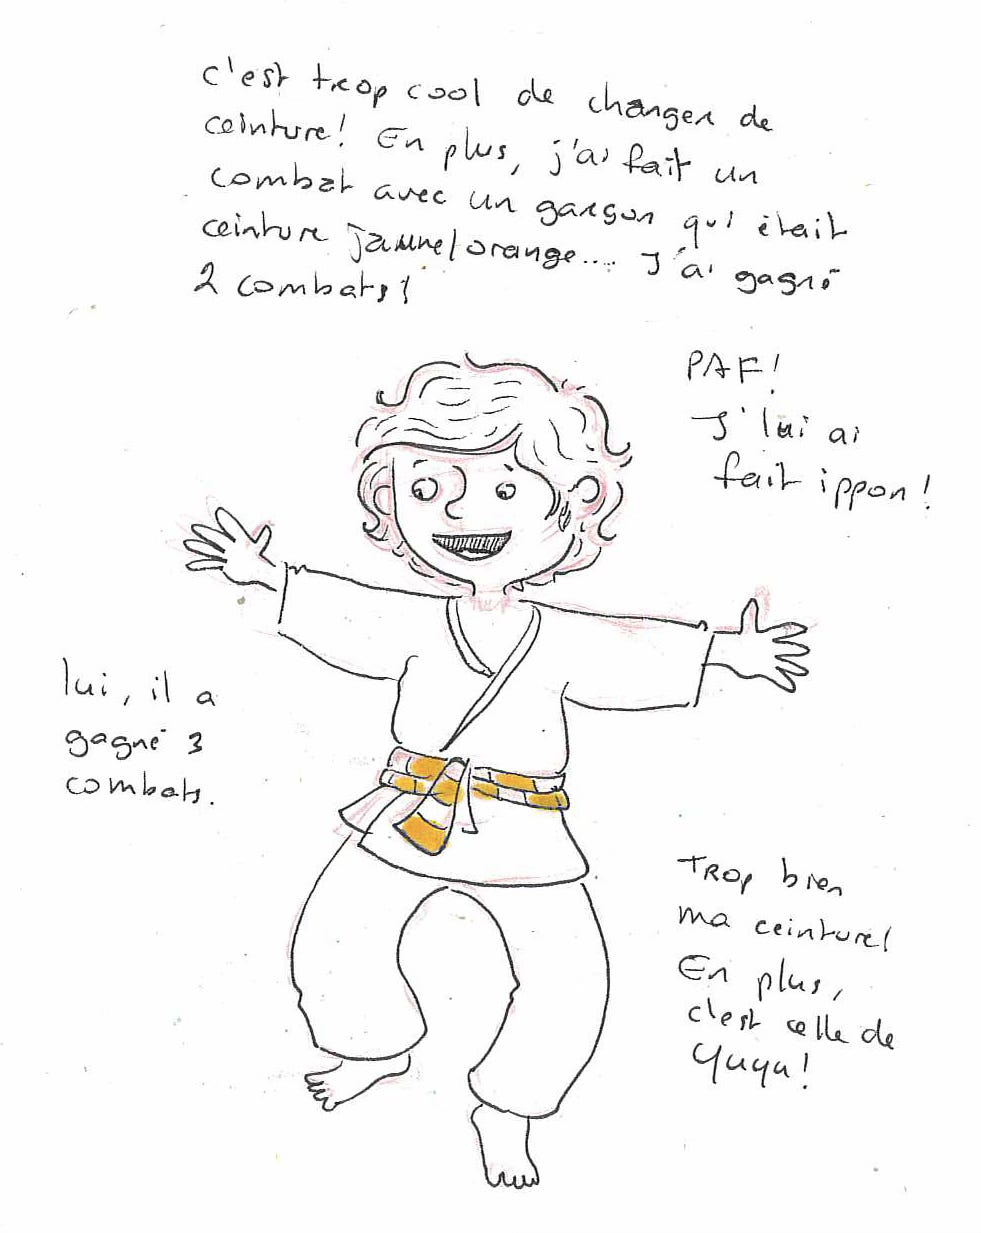 c'est trop cool de changer de
ceinture! En plus, j'ai fait un
combat avec un garçon qui était
ceinture jaune/orange.... J'ai gagné
2 combats!
PAF!
J'lui ai
fait ippon!
lui, il a
gagné 3
combats.
Trop bien
ma ceinture!
En plus,
c'est celle de
Yuya!